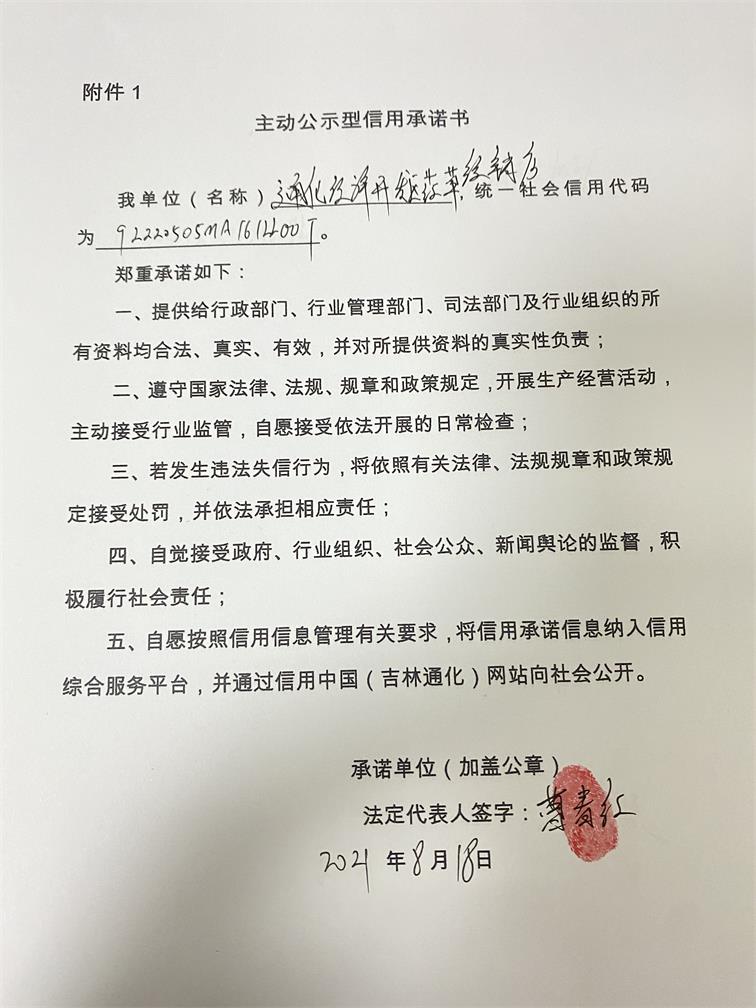 附件 1
主动公示型信用承诺书
我单位（名称）通化经济开发区，统一社会信用代码
为。
郑重承诺如下：
一、提供给行政部门、行业管理部门、司法部门及行业组织的所
有资料均合法、真实、有效，并对所提供资料的真实性负责；
二、遵守国家法律、法规、规章和政策规定，开展生产经营活动，
主动接受行业监管，自愿接受依法开展的日常检查；
三、若发生违法失信行为，将依照有关法律、法规规章和政策规
定接受处罚，并依法承担相应责任；
四、自觉接受政府、行业组织、社会公众、新闻舆论的监督，积
极履行社会责任；
五、自愿按照信用信息管理有关要求，将信用承诺信息纳入信用
综合服务平台，并通过信用中国（吉林通化）网站向社会公开。
承诺单位（加盖公章）
法定代表人签字：
2021 年 8 月 18 日